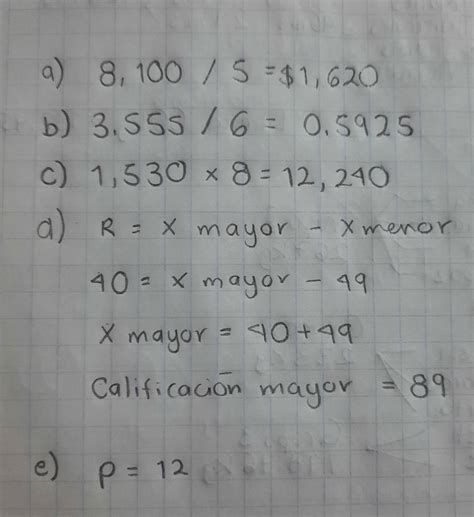 a) 8,100 / 5 = $1,620
b) 3.555 / 6 = 0.5925
c) 1,530 × 8 = 12,240
d) R = x mayor - x menor
40 = x mayor - 49
x mayor = 40 + 49
Calificación mayor = 89
e) p = 12